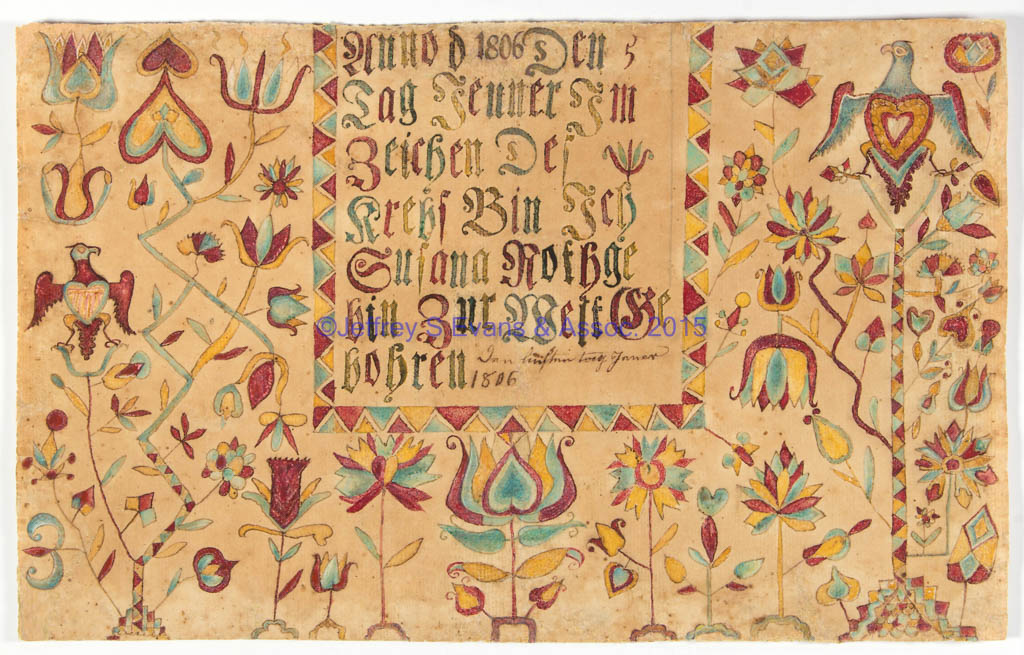 Anno d 1806s Den 5
Tag Jenner Im
Zeichen Des
Krebs Bin Ich
Susana Rothge
bin Zur Welt Ge
©Jeffrey S Evans & Assoc. 2015
bohren Den
1806